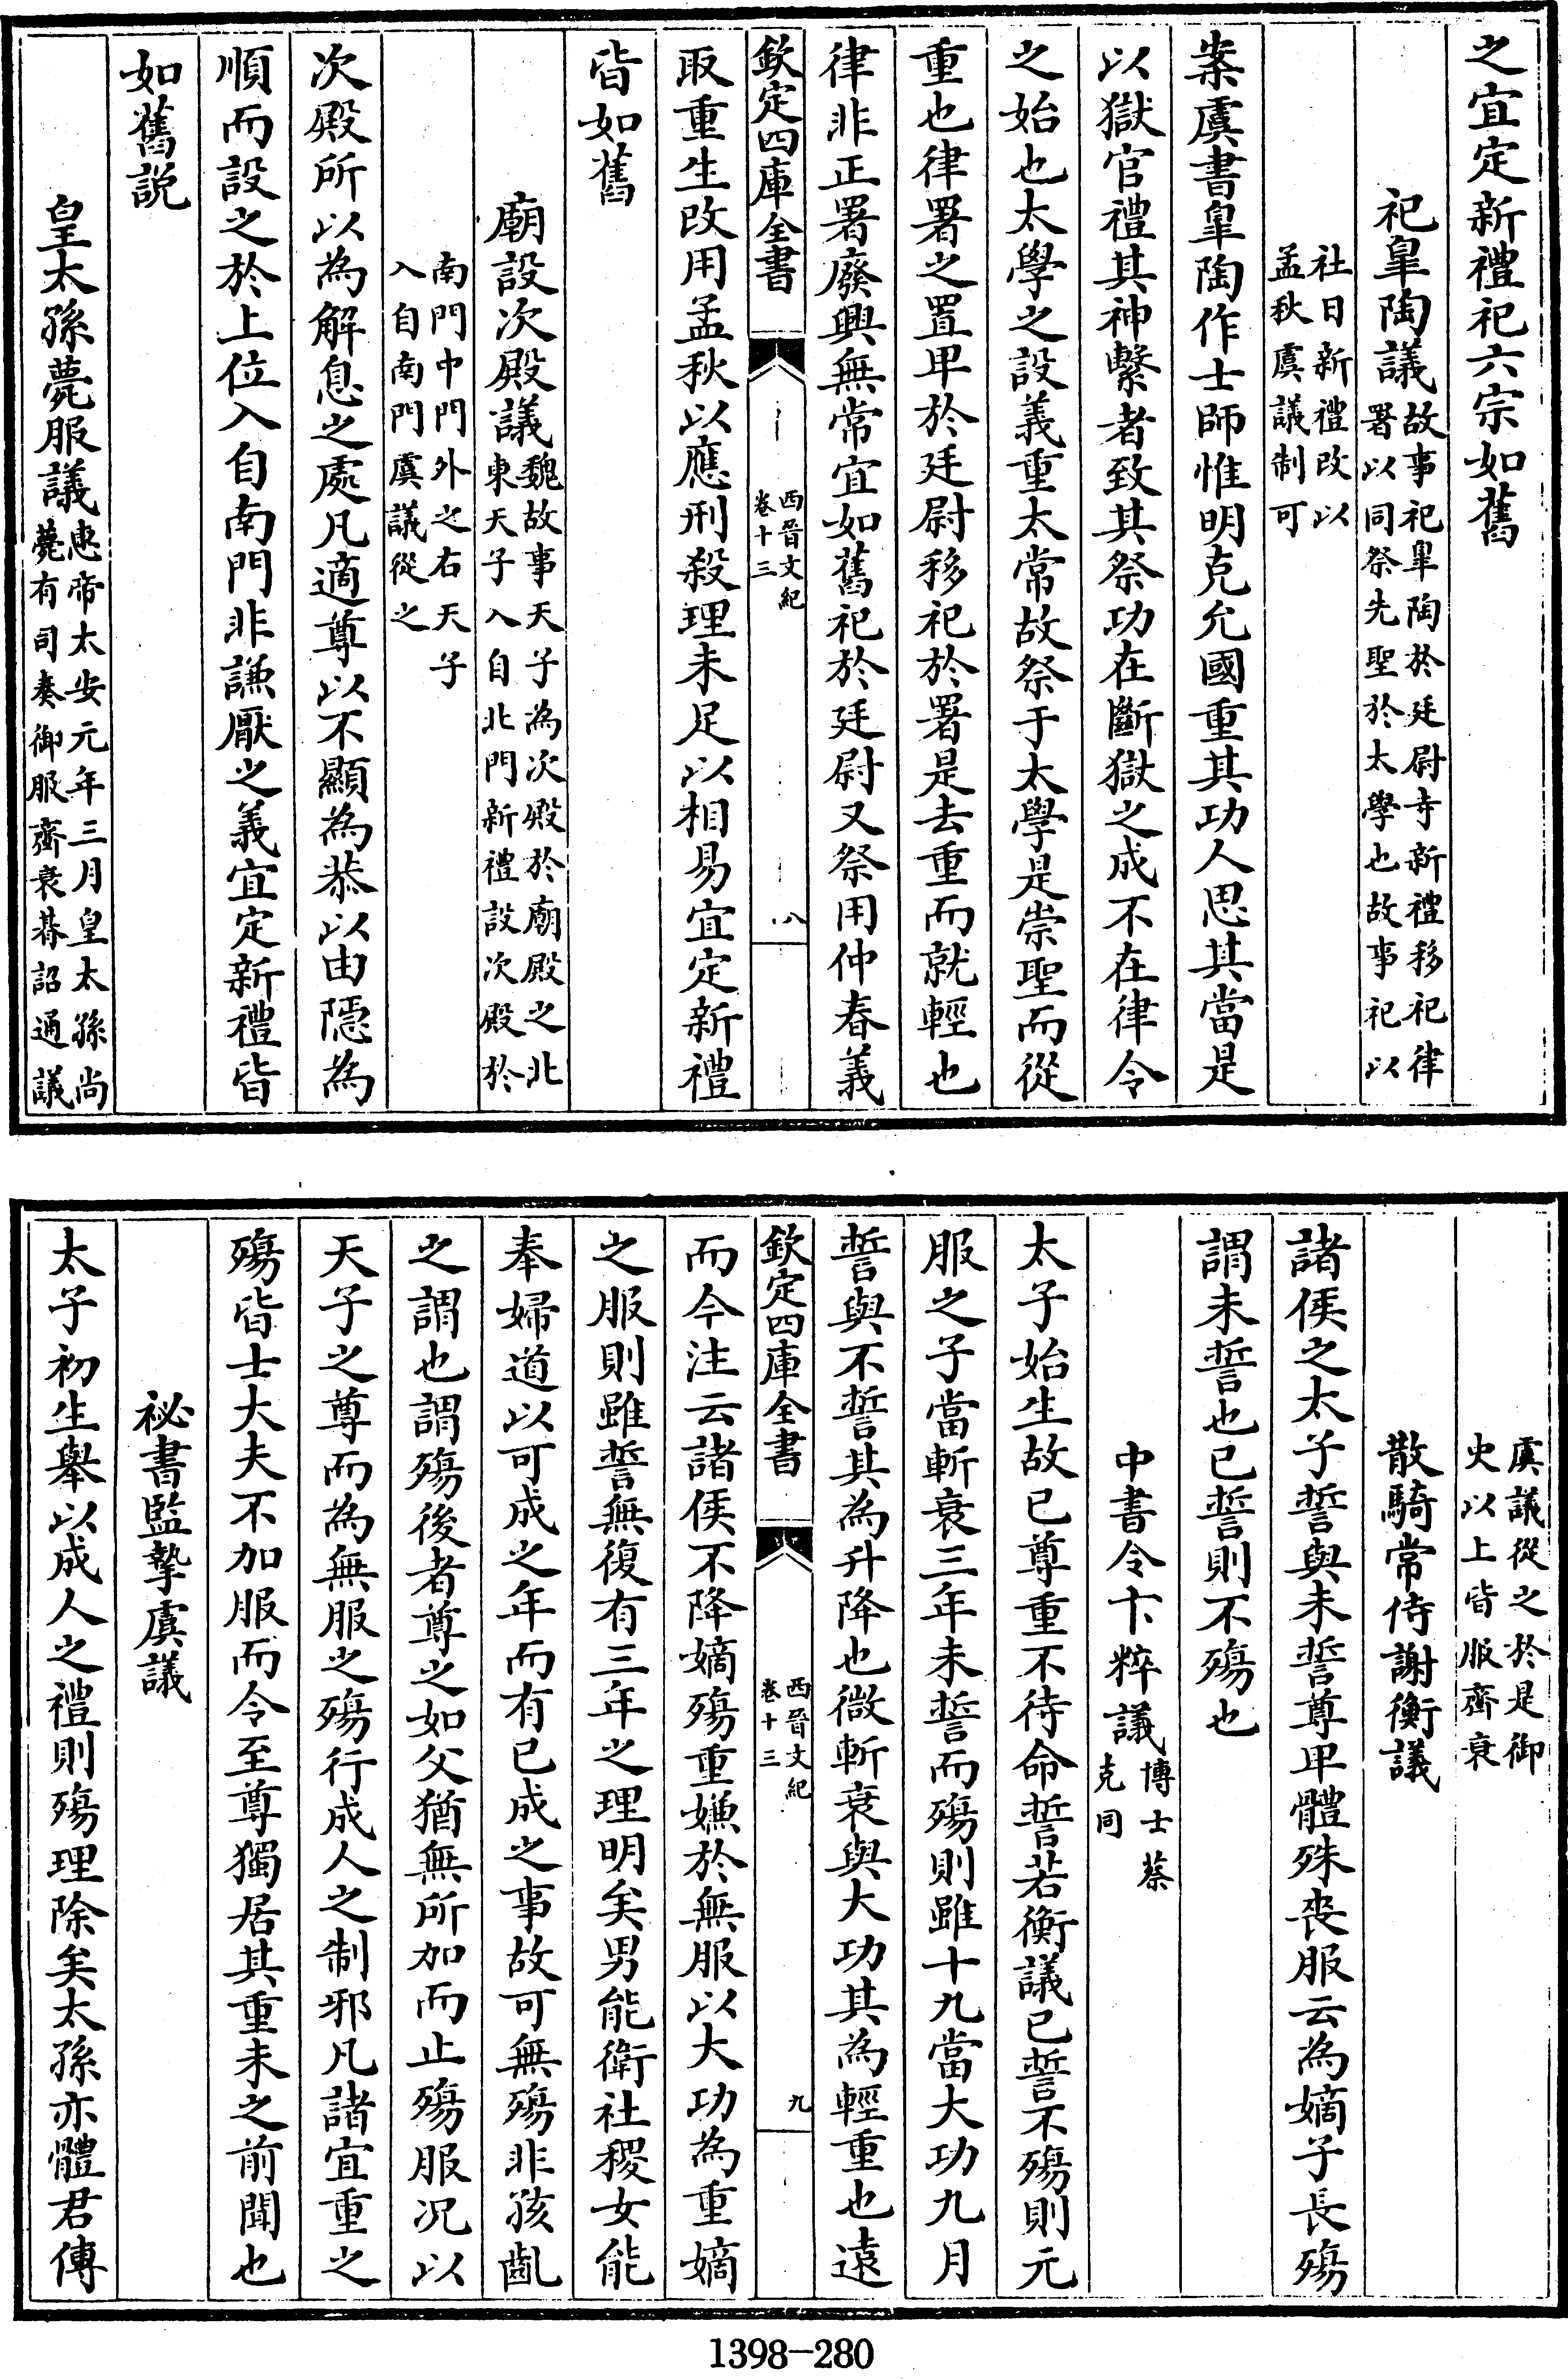 之宜定新禮祀六宗如舊
祀臯陶議故事祀臯陶於廷尉寺新禮移祀律
署以同祭先聖於太學也故事祀以
社日新禮改以
孟秋虞議制可
案虞書臯陶作士師惟明克允國重其功人思其當是
以獄官禮其神繫者致其祭功在斷獄之成不在律令
之始也太學之設義重太常故祭于太學是崇聖而從
重也律署之置卑於廷尉移祀於署是去重而就輕也
律非正署廢興無常宜如舊祀於廷尉又祭用仲春義
欽定四庫全書
西晉文紀
卷十三
八
取重生改用孟秋以應刑殺理未足以相易宜定新禮
皆如舊
廟設次殿議魏故事天子為次殿於廟殿之北
東天子入自北門新禮設次殿於
南門中門外之右天子
入自南門虞議從之
次殿所以為解息之處凡適尊以不顯為恭以由隱為
順而設之於上位入自南門非謙厭之義宜定新禮皆
如舊說
皇太孫薨服議惠帝太安元年三月皇太孫尚
薨有司奏御服齊衰朞詔通議
虞議從之於是御
史以上皆服齊衰
散騎常侍謝衡議
諸侯之太子誓與未誓尊卑體殊喪服云為嫡子長殤
謂未誓也已誓則不殤也
中書令卞粹議博士蔡
克同
太子始生故已尊重不待命誓若衡議已誓不殤則元
服之子當斬衰三年未誓而殤則雖十九當大功九月
誓與不誓其為升降也微斬衰與大功其為輕重也遠
欽定四庫全書
西晉文紀
卷十三
九
而今注云諸侯不降嫡殤重嫌於無服以大功為重嫡
之服則雖誓無復有三年之理明矣男能衛社稷女能
奉婦道以可成之年而有已成之事故可無殤非孩齔
之謂也謂殤後者尊之如父猶無所加而止殤服况以
天子之尊而為無服之殤行成人之制邪凡諸宜重之
殤皆士大夫不加服而令至尊獨居其重未之前聞也
祕書監摯虞議
太子初生舉以成人之禮則殤理除矣太孫亦體君傳
1398-280